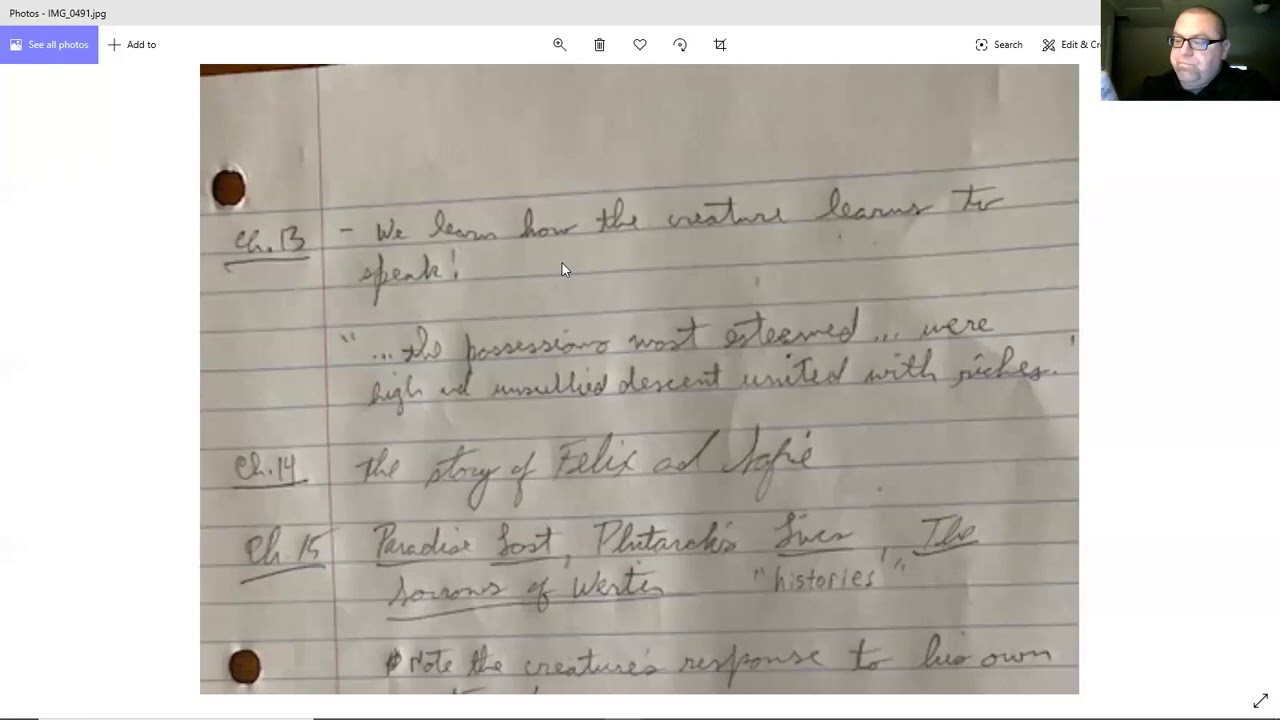 Photos - IMG_0491.jpg
See all photos
Add to
Search
Edit & Cr
Ch. 13 - We learn how the creature learns to
speak!
"... the possessions most esteemed ... were
high and unsullied descent united with riches."
Ch. 14 the story of Felix and Safie
Ch. 15 Paradise Lost, Plutarch's Lives, The
Sorrows of Werter "histories"
Note the creature's response to his own